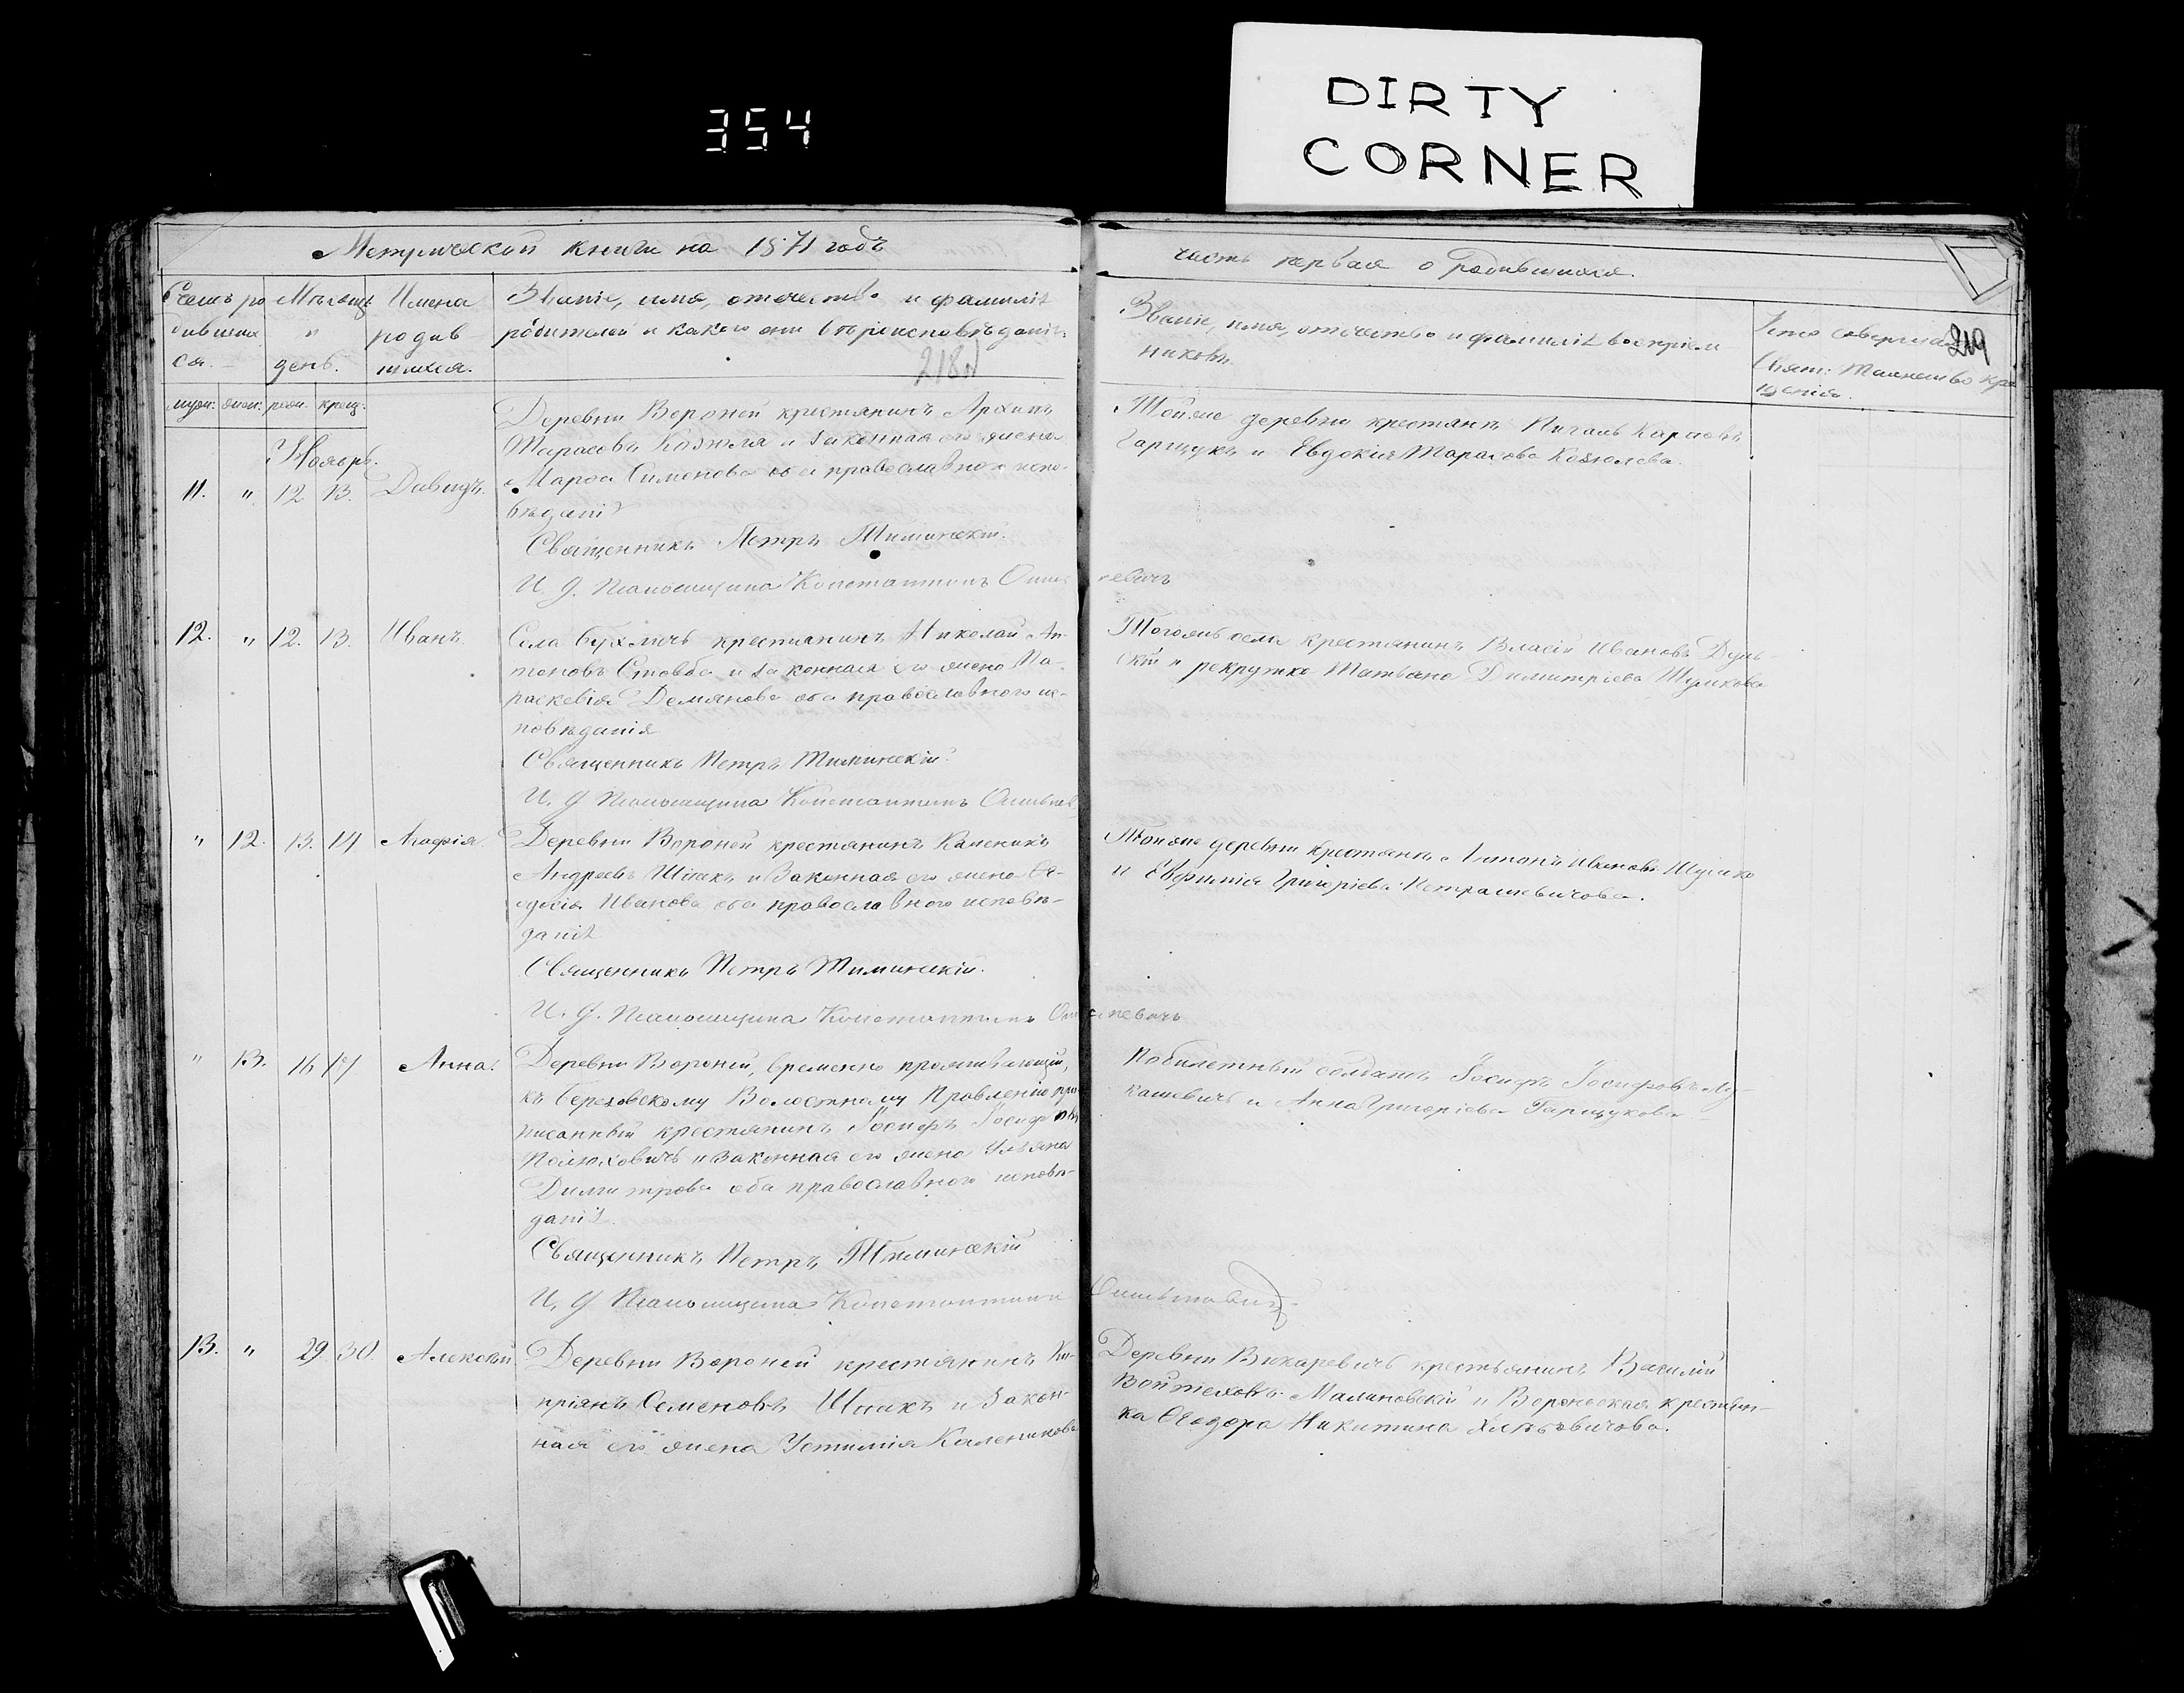 354
DIRTY
CORNER
Метрической книги на 1871 годъ
часть первая о родившихся.
Счетъ ро
дивших
ся.
Мѣсяцъ
и
день.
Имена
родив
шихся.
Званіе, имя, отечество и фамилія
родителей и какого они вѣроисповѣданія.
218 
Званіе, имя, отечество и фамилія воспріем
никовъ.
Кто совершалъ
Свят: Таинство кре
щенія.
219
муж: жен: рожд. крещ:
Ноябрь.
11. " 12 13. Давидъ.
Деревни Вороней крестянинъ Архипъ
Тарасовъ Козюля и законная его жена
Марѳа Сименова оба православнаго испо-
вѣданія
Священникъ Петръ Тиминскій.
И. д. Псаломщика Константинъ
Тойже деревни крестянъ Карповъ
Гарщукъ и Евдокія Тарасова Козюлева.
12. " 12. 13. Иванъ
Села Бухличь крестянинъ Николай Ан-
тоновъ Стовба и законная его жена Па-
раскевія Демянова оба православного ис-
повѣданія
Священникъ Петръ Тиминскій.
И. д Псаломщика Константинъ
Тогожъ села крестянинъ Власій Ивановъ
и рекрутка Татьяна Димитріева
" 12. 13. 14 Агафія
Деревни Вороней крестянинъ Каленикъ
Андреевъ Шпакъ и Законная его жена Ѳе-
одосія Иванова оба православного исповѣ-
данія
Священникъ Петръ Тиминскій.
И. д. Псаломщика Константинъ
Тойже деревни крестянъ Антонъ Ивановъ
и Евфимія Григоріева Петрашкевичова.
" 13. 16 17 Анна.
Деревни Вороней, временно проживающій,
къ Березовскому Волостному Правленію при-
писанный крестянинъ Іосифъ Іосифовъ
и законная его жена Ульяна
Димитрова оба православного исповѣ-
данія.
Священникъ Петръ Тиминскій
И, д Псаломщика Константинъ
По билетный солдатъ Іосифъ Іосифовъ Лу-
кашевичъ и Анна Григоріева Гарщукова
13. " 29 30. Алексѣй
Деревни Вороней крестянинъ Ки-
пріянъ Семеновъ Шпакъ и Закон-
ная его жена Устимія Каленикова
Деревни Викаревичъ крестьянинъ Василій
Войтеховъ Малиновскій и Вороновская крестьян-
ка Ѳеодора Никитина Хлѣбовичова.